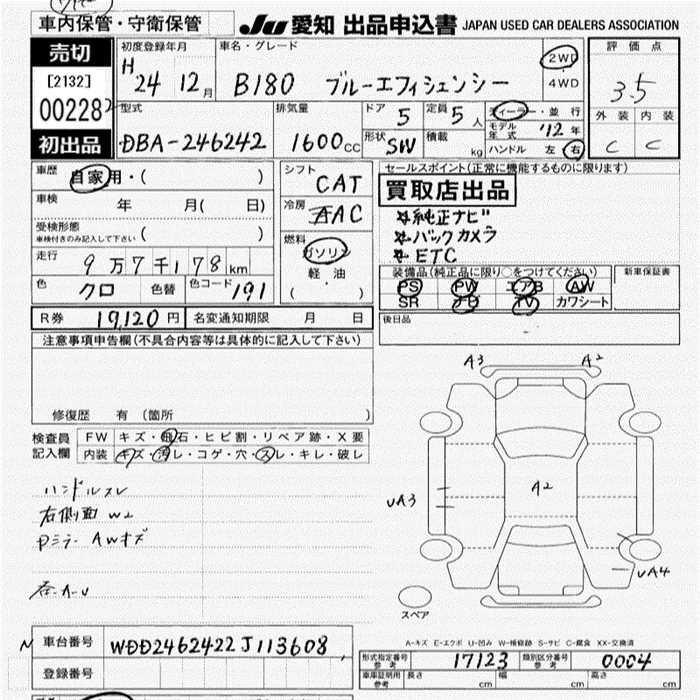 車内保管・守衛保管
JU 愛知 出品申込書 JAPAN USED CAR DEALERS ASSOCIATION
売切
[2132]
00228
初出品
初度登録年月
H 24 12月
車名・グレード
B180 ブルーエフィシェンシー
2WD
4WD
評価点
3.5
外装 内装
C C
型式
DBA-246242
排気量
1600cc
ドア 5
定員 5人
形状 SW
積載 kg
ディーラー・並行
モデル年式 '12年
ハンドル 左 右
車歴
自家用・( )
車検 年 月( 日)
受検形態
車検付きのみ記入して下さい ( )
走行
9万7千178km
色 クロ 色替 色コード 191
シフト
CAT
冷房
AAC
燃料
ガソリン
軽油
( )
セールスポイント(正常に機能するものに限ります)
買取店出品
※純正ナビ
※バックカメラ
※ETC
装備品(純正品に限り○をつけてください)
新車保証書
PS PW エアB AW
SR ナビ TV カワシート
R券 17,120円 名変通知期限 月 日
後日品
注意事項申告欄(不具合内容等は具体的に記入して下さい)
修復歴 有 (箇所 )
検査員記入欄
FW キズ・飛石・ヒビ割・リペア跡・X要
内装 キズ・汚レ・コゲ・穴・スレ・キレ・破レ
ハンドルスレ
右側面 W2
Pミラー AWキズ
各A・U
A3 A2
UA3
A2
UA4
スペア
A-キズ E-エクボ U-凹み W-補修跡 S-サビ C-腐食 XX-交換済
車台番号 WDD2462422J113608
登録番号
型式指定番号参考 17123
類別区分番号参考 0004
車庫証明用参考 長さ cm 幅 cm 高さ cm